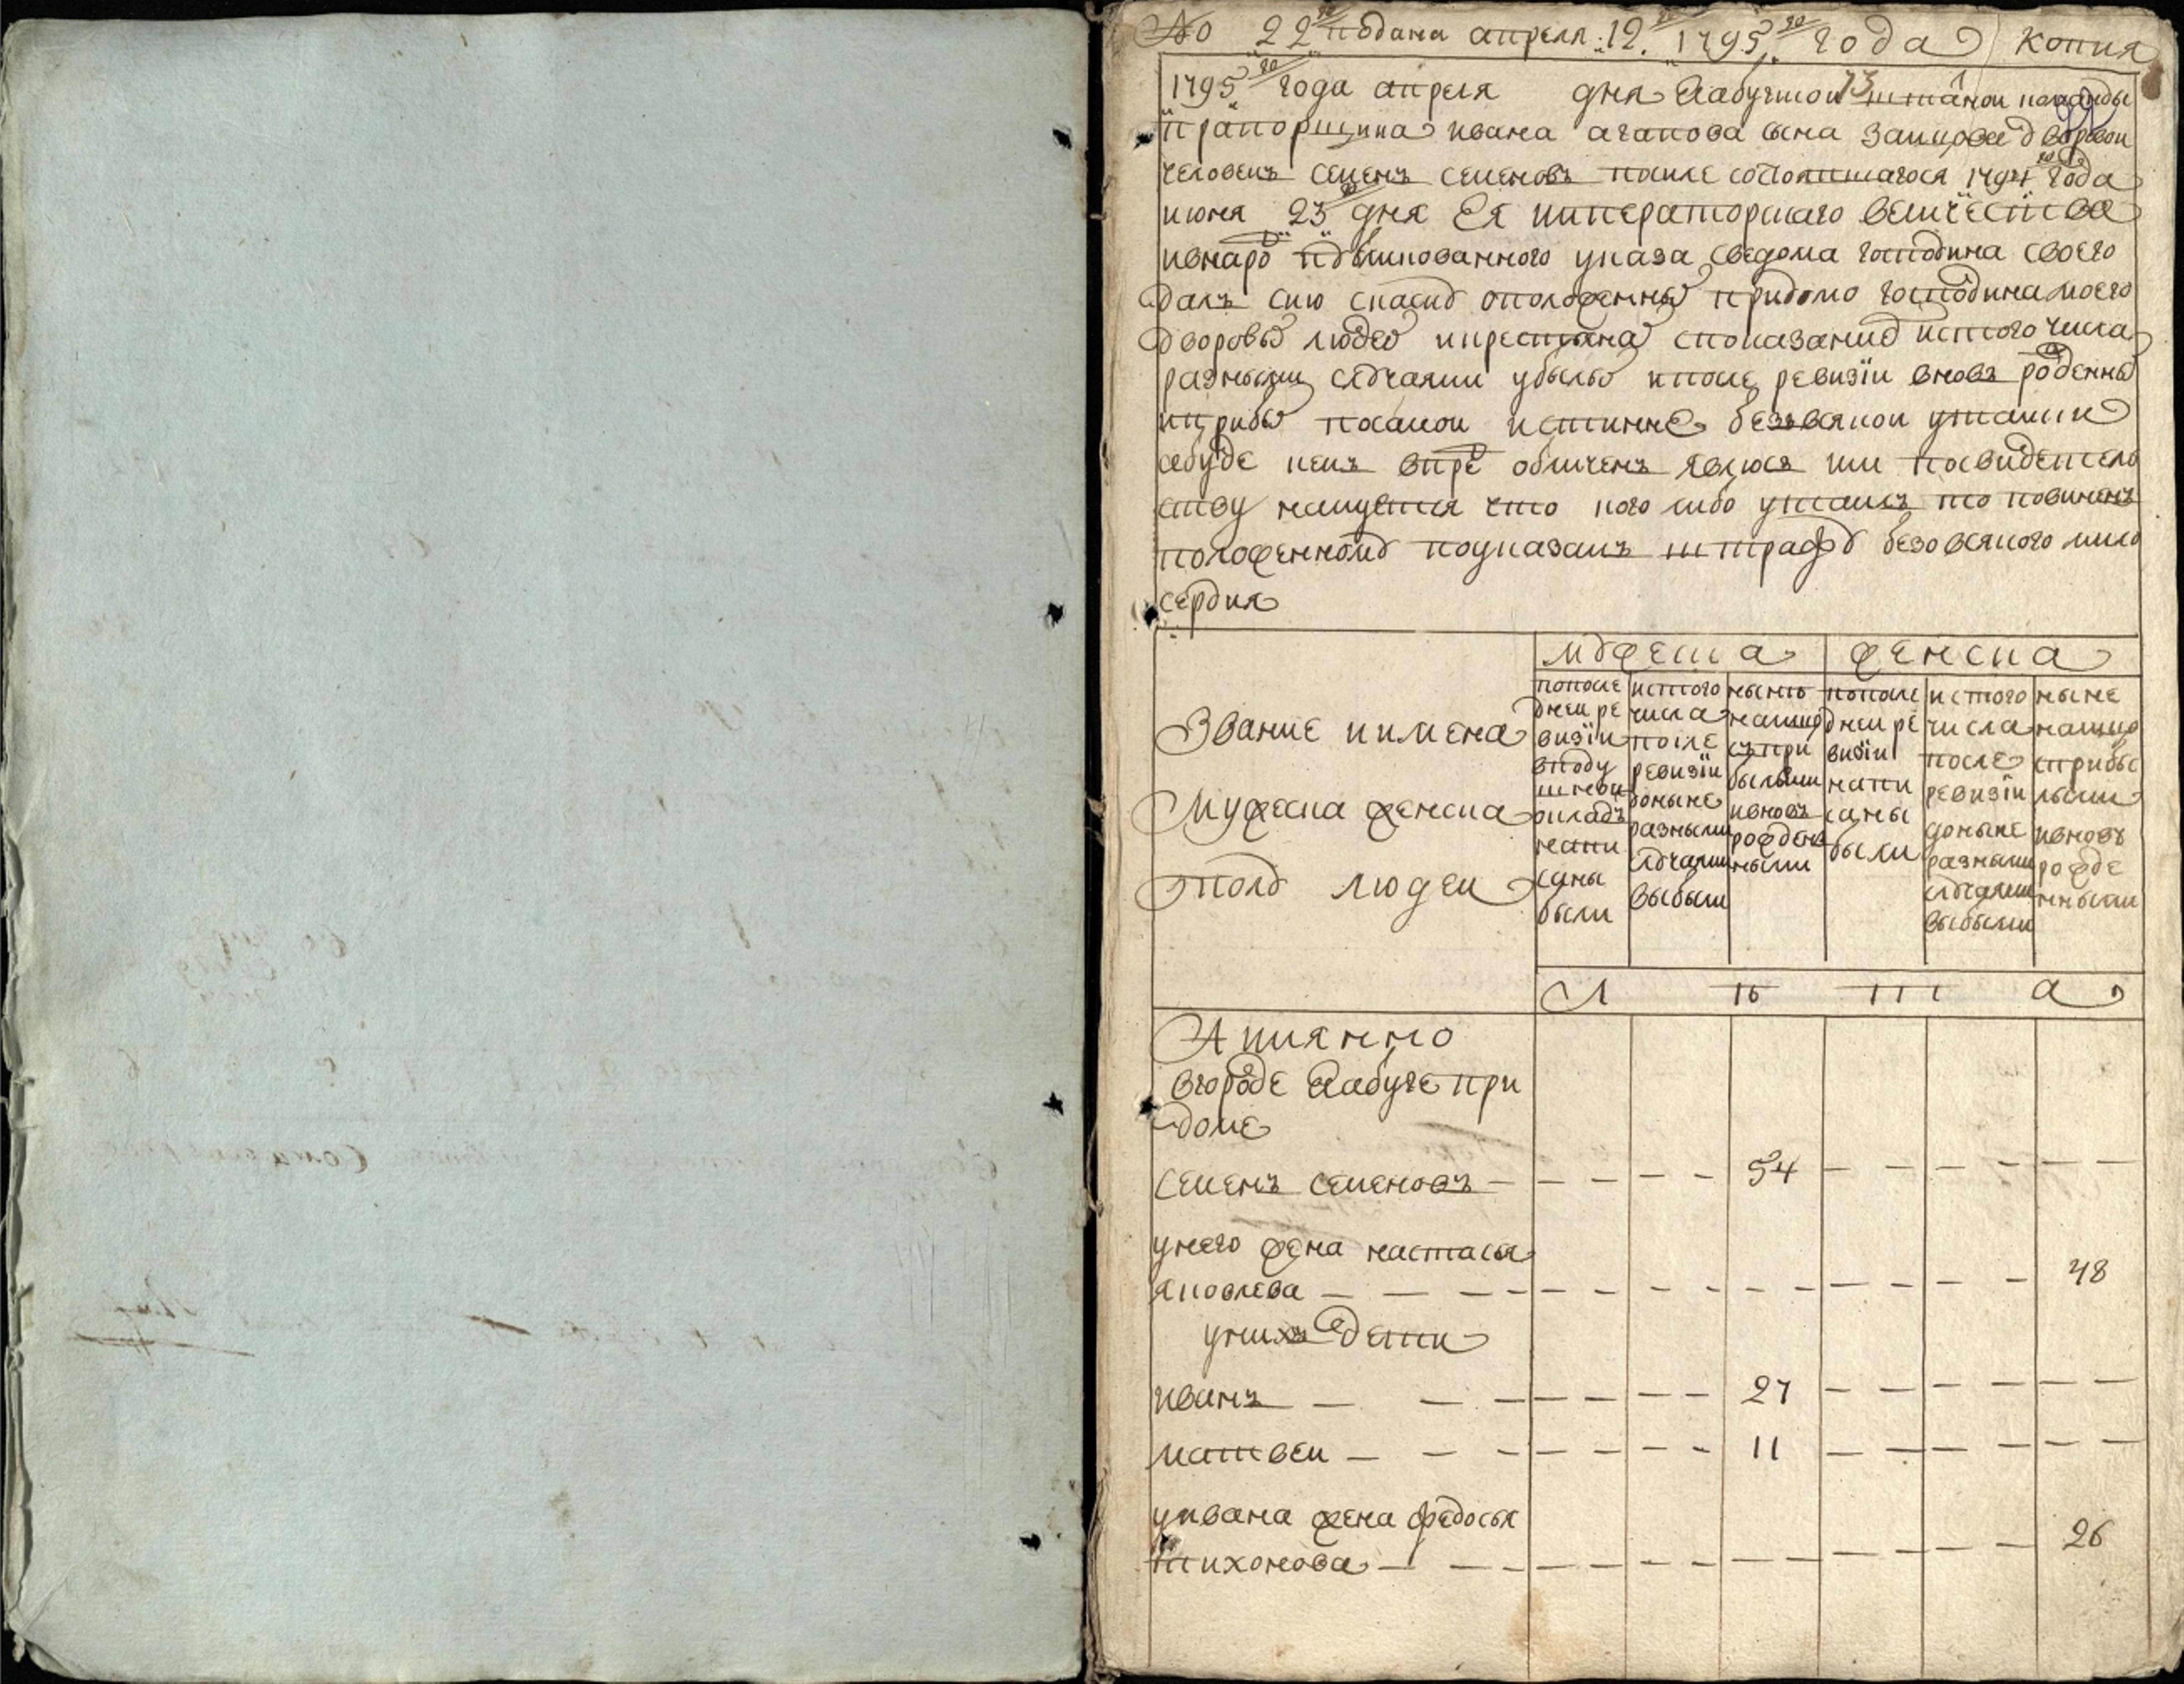 No 22го подана апреля 12го 1795го года копия
1795го года апреля дня Елабужской штатной команды
прапорщика ивана агапова сына зайцова дворовой
человекъ семенъ семеновъ после состоявшагося 1794го года
июня 23го дня Ея императорскаго величества
ивнародъ публикованного указа сведома господина своего
далъ сию скаску оположенныхъ придомо господина моего
дворовыхъ людеи икрестьянахъ споказаниемъ истого числа
разными случаями убылыхъ ипосле ревизїи вновь рожденныхъ
иприбылыхъ посамои истинне безвсякои утаики
абуде кемъ впредь обличенъ явлюся или посвидетель
ству наидется что кого либо утаилъ то повиненъ
положенному поуказамъ штрафу безовсякого мило
сердия
мужеска женска
Звание иимена
Мужеска женска
полу людеи
попосле
днеи ре
визїи
вподу
шнеи
окладъ
напи
саны
были
истого
числа
после
ревизїи
доныне
разными
случаями
выбыли
ныне
налицо
съ при
былыми
ивновь
рожден
ными
попосле
днеи ре
визїи
напи
саны
были
истого
числа
после
ревизїи
доныне
разными
случаями
выбыли
ныне
налицо
сприбы
лыми
ивновь
рожде
нными
Л ѣ т а
А имянно
вгороде Елабуге при
доме
семенъ семеновъ 54
унего жена настасья
яковлева 48
унихъ дети
иванъ 27
матвеи 11
уивана жена федосья
тихонова 26